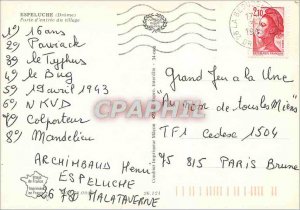 ESPELUCHE (Drôme)
Porte d'entrée du village
1°) 16 ans
2°) Pauriack
3°) Le Typhus
4°) Le Bug
5°) 19 avril 1943
6°) NKVD
7°) Colporteur
8°) Mandelieu
ARCHIMBAUD Henri
ESPELUCHE
26780 MALATAVERNE
2,10
Grand Jeu a la Une
"Au nom de tous les Miens"
TF1 Cedex 1504
75 815 PARIS Brune